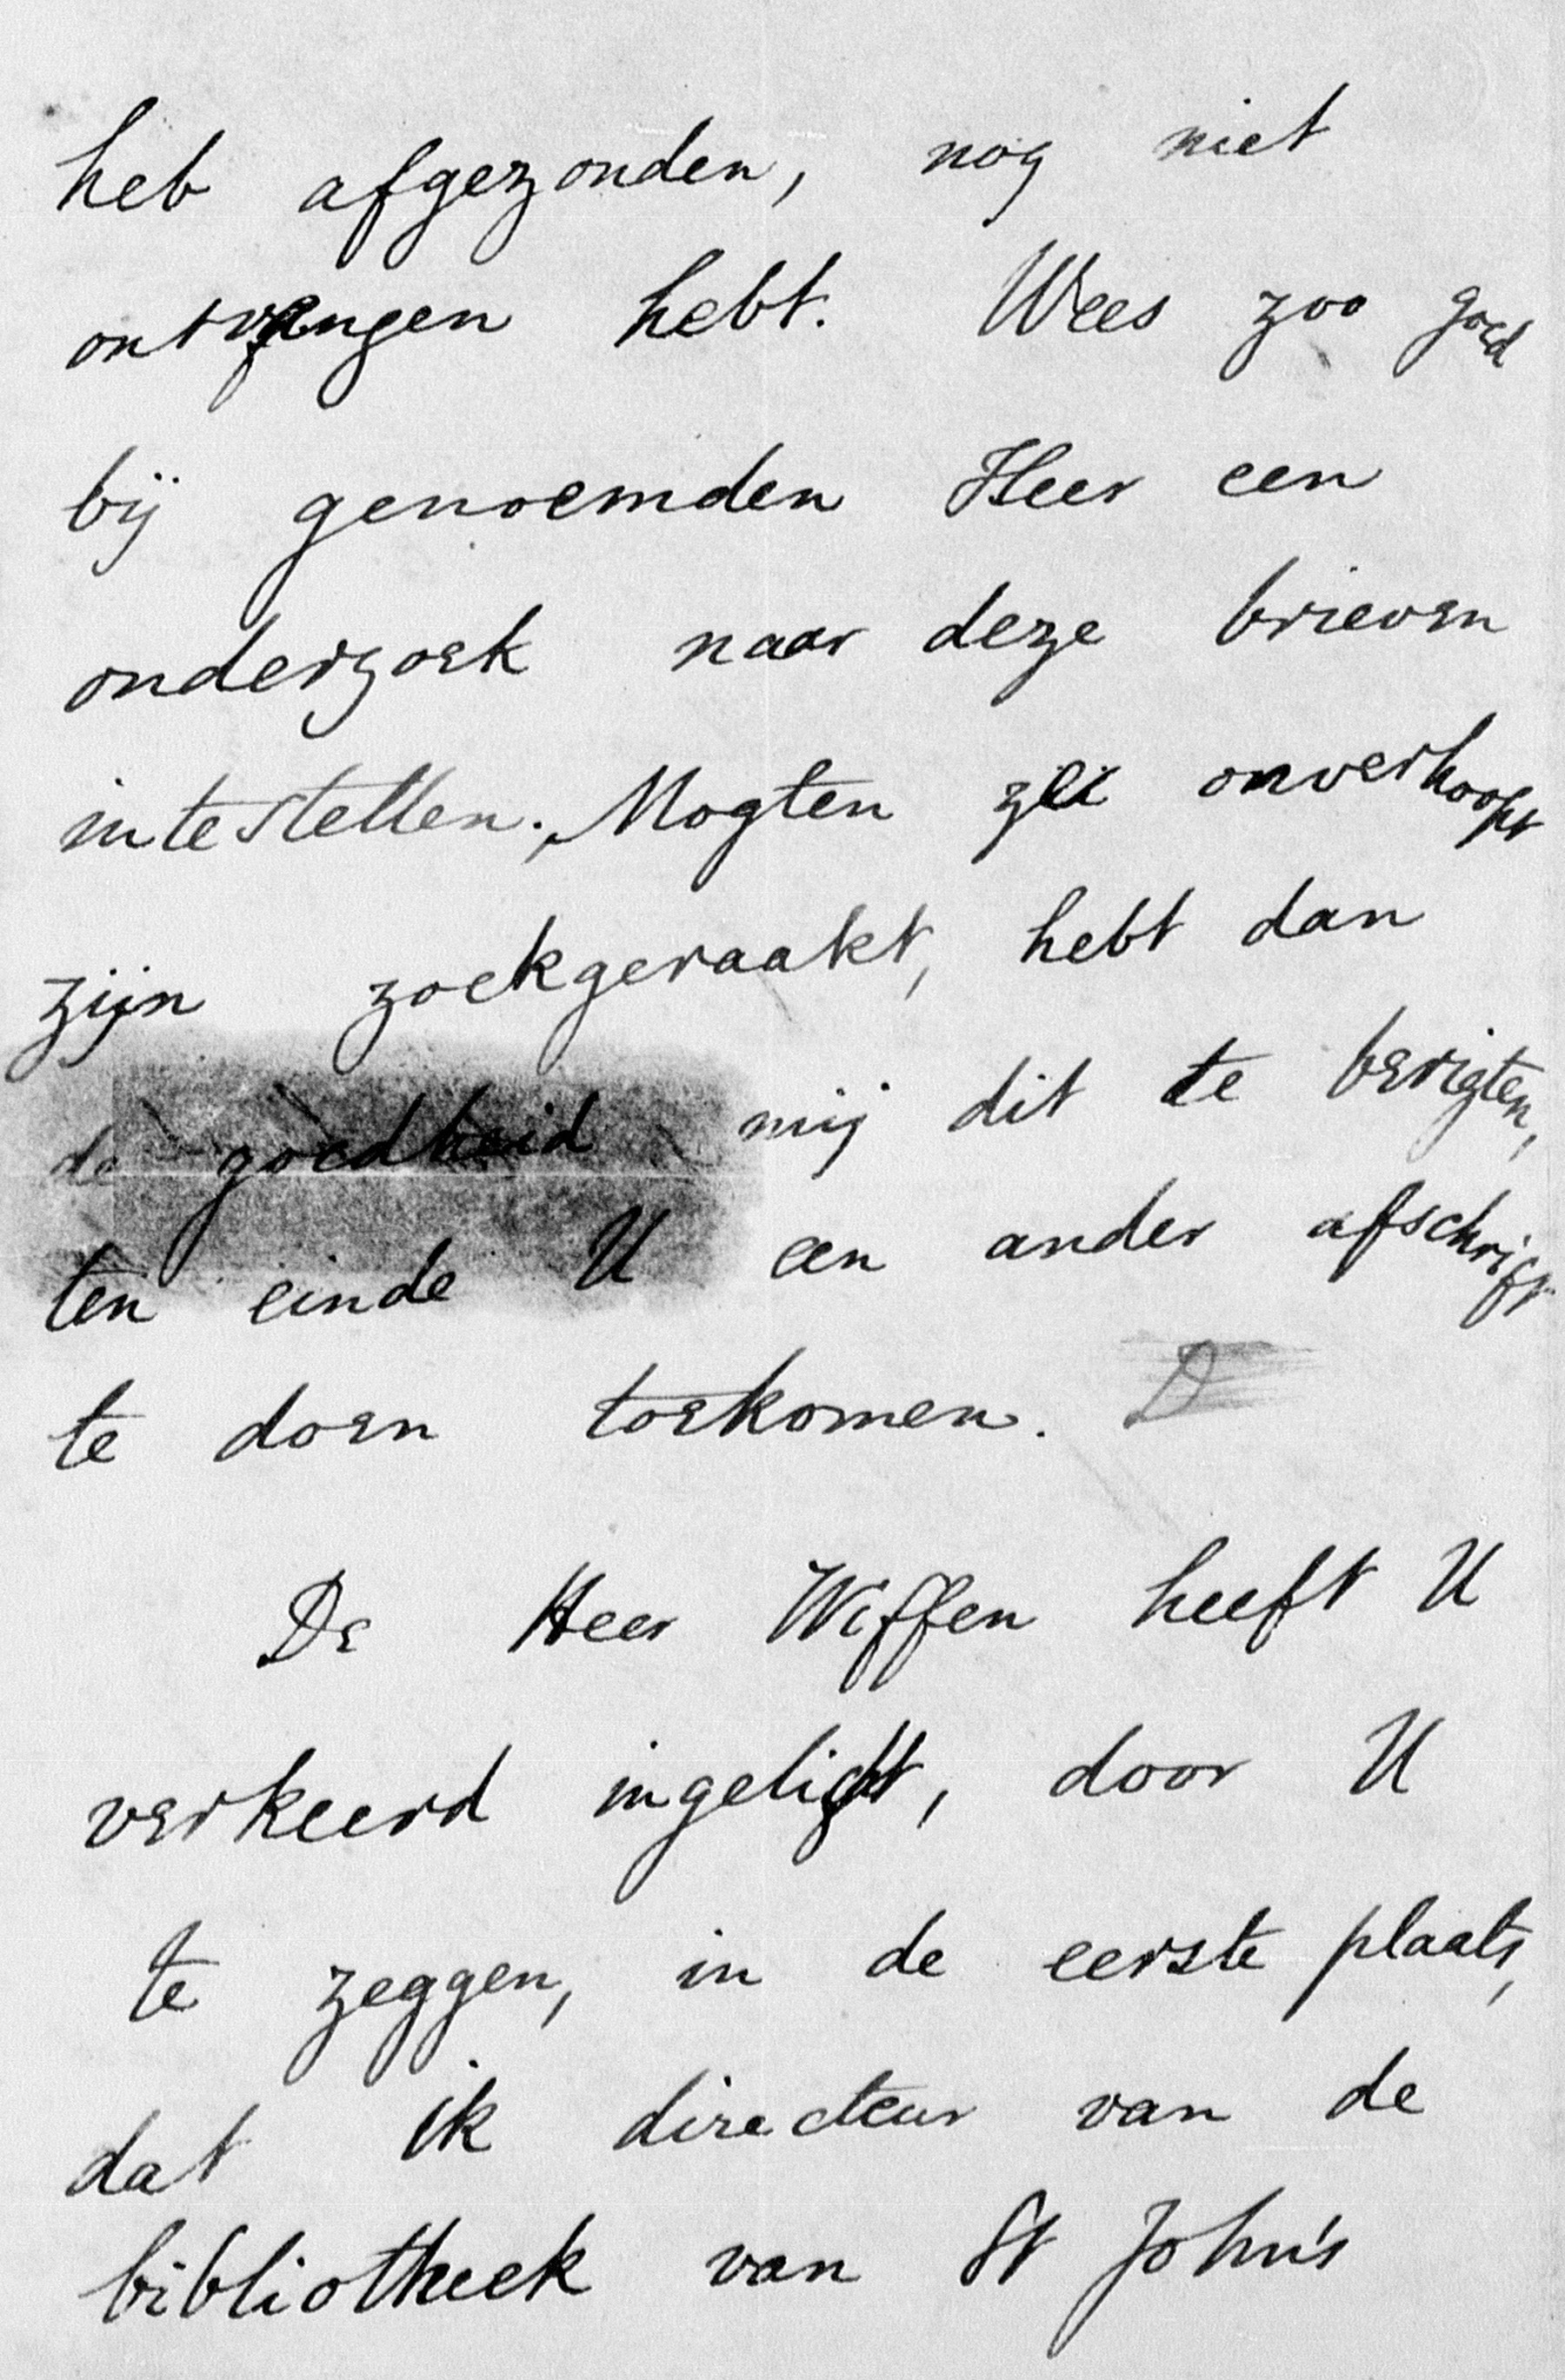 heb afgezonden, nog niet
ontvangen hebt. Wees zoo goed
bij genoemden Heer een
onderzoek naar deze brieven
intestellen. Mogten zij onverhoopt
zijn zoekgeraakt, hebt dan
de goedheid mij dit te berigten,
ten einde U een ander afschrift
te doen toekomen. D
De Heer Wiffen heeft U
verkeerd ingeligt, door U
te zeggen, in de eerste plaats,
dat ik directeur van de
bibliotheek van St John's